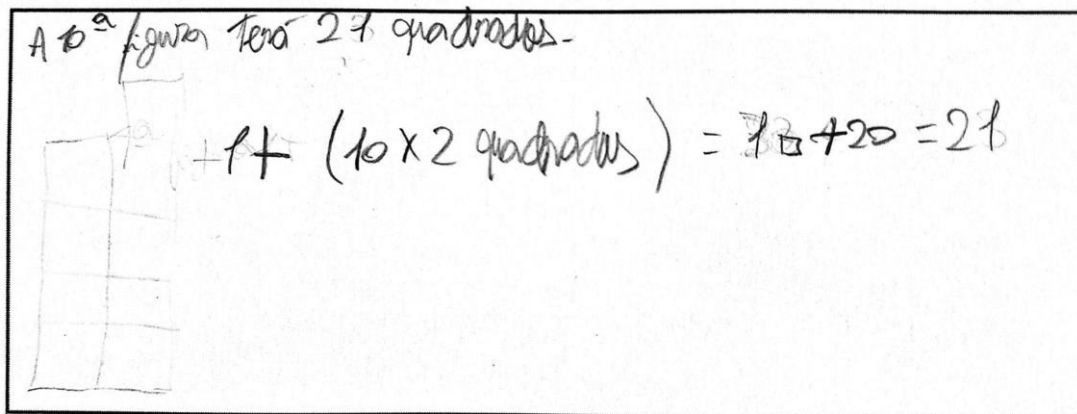 A 10ª figura terá 21 quadrados.
1+ (10 x 2 quadrados) = 1□ +20 = 21